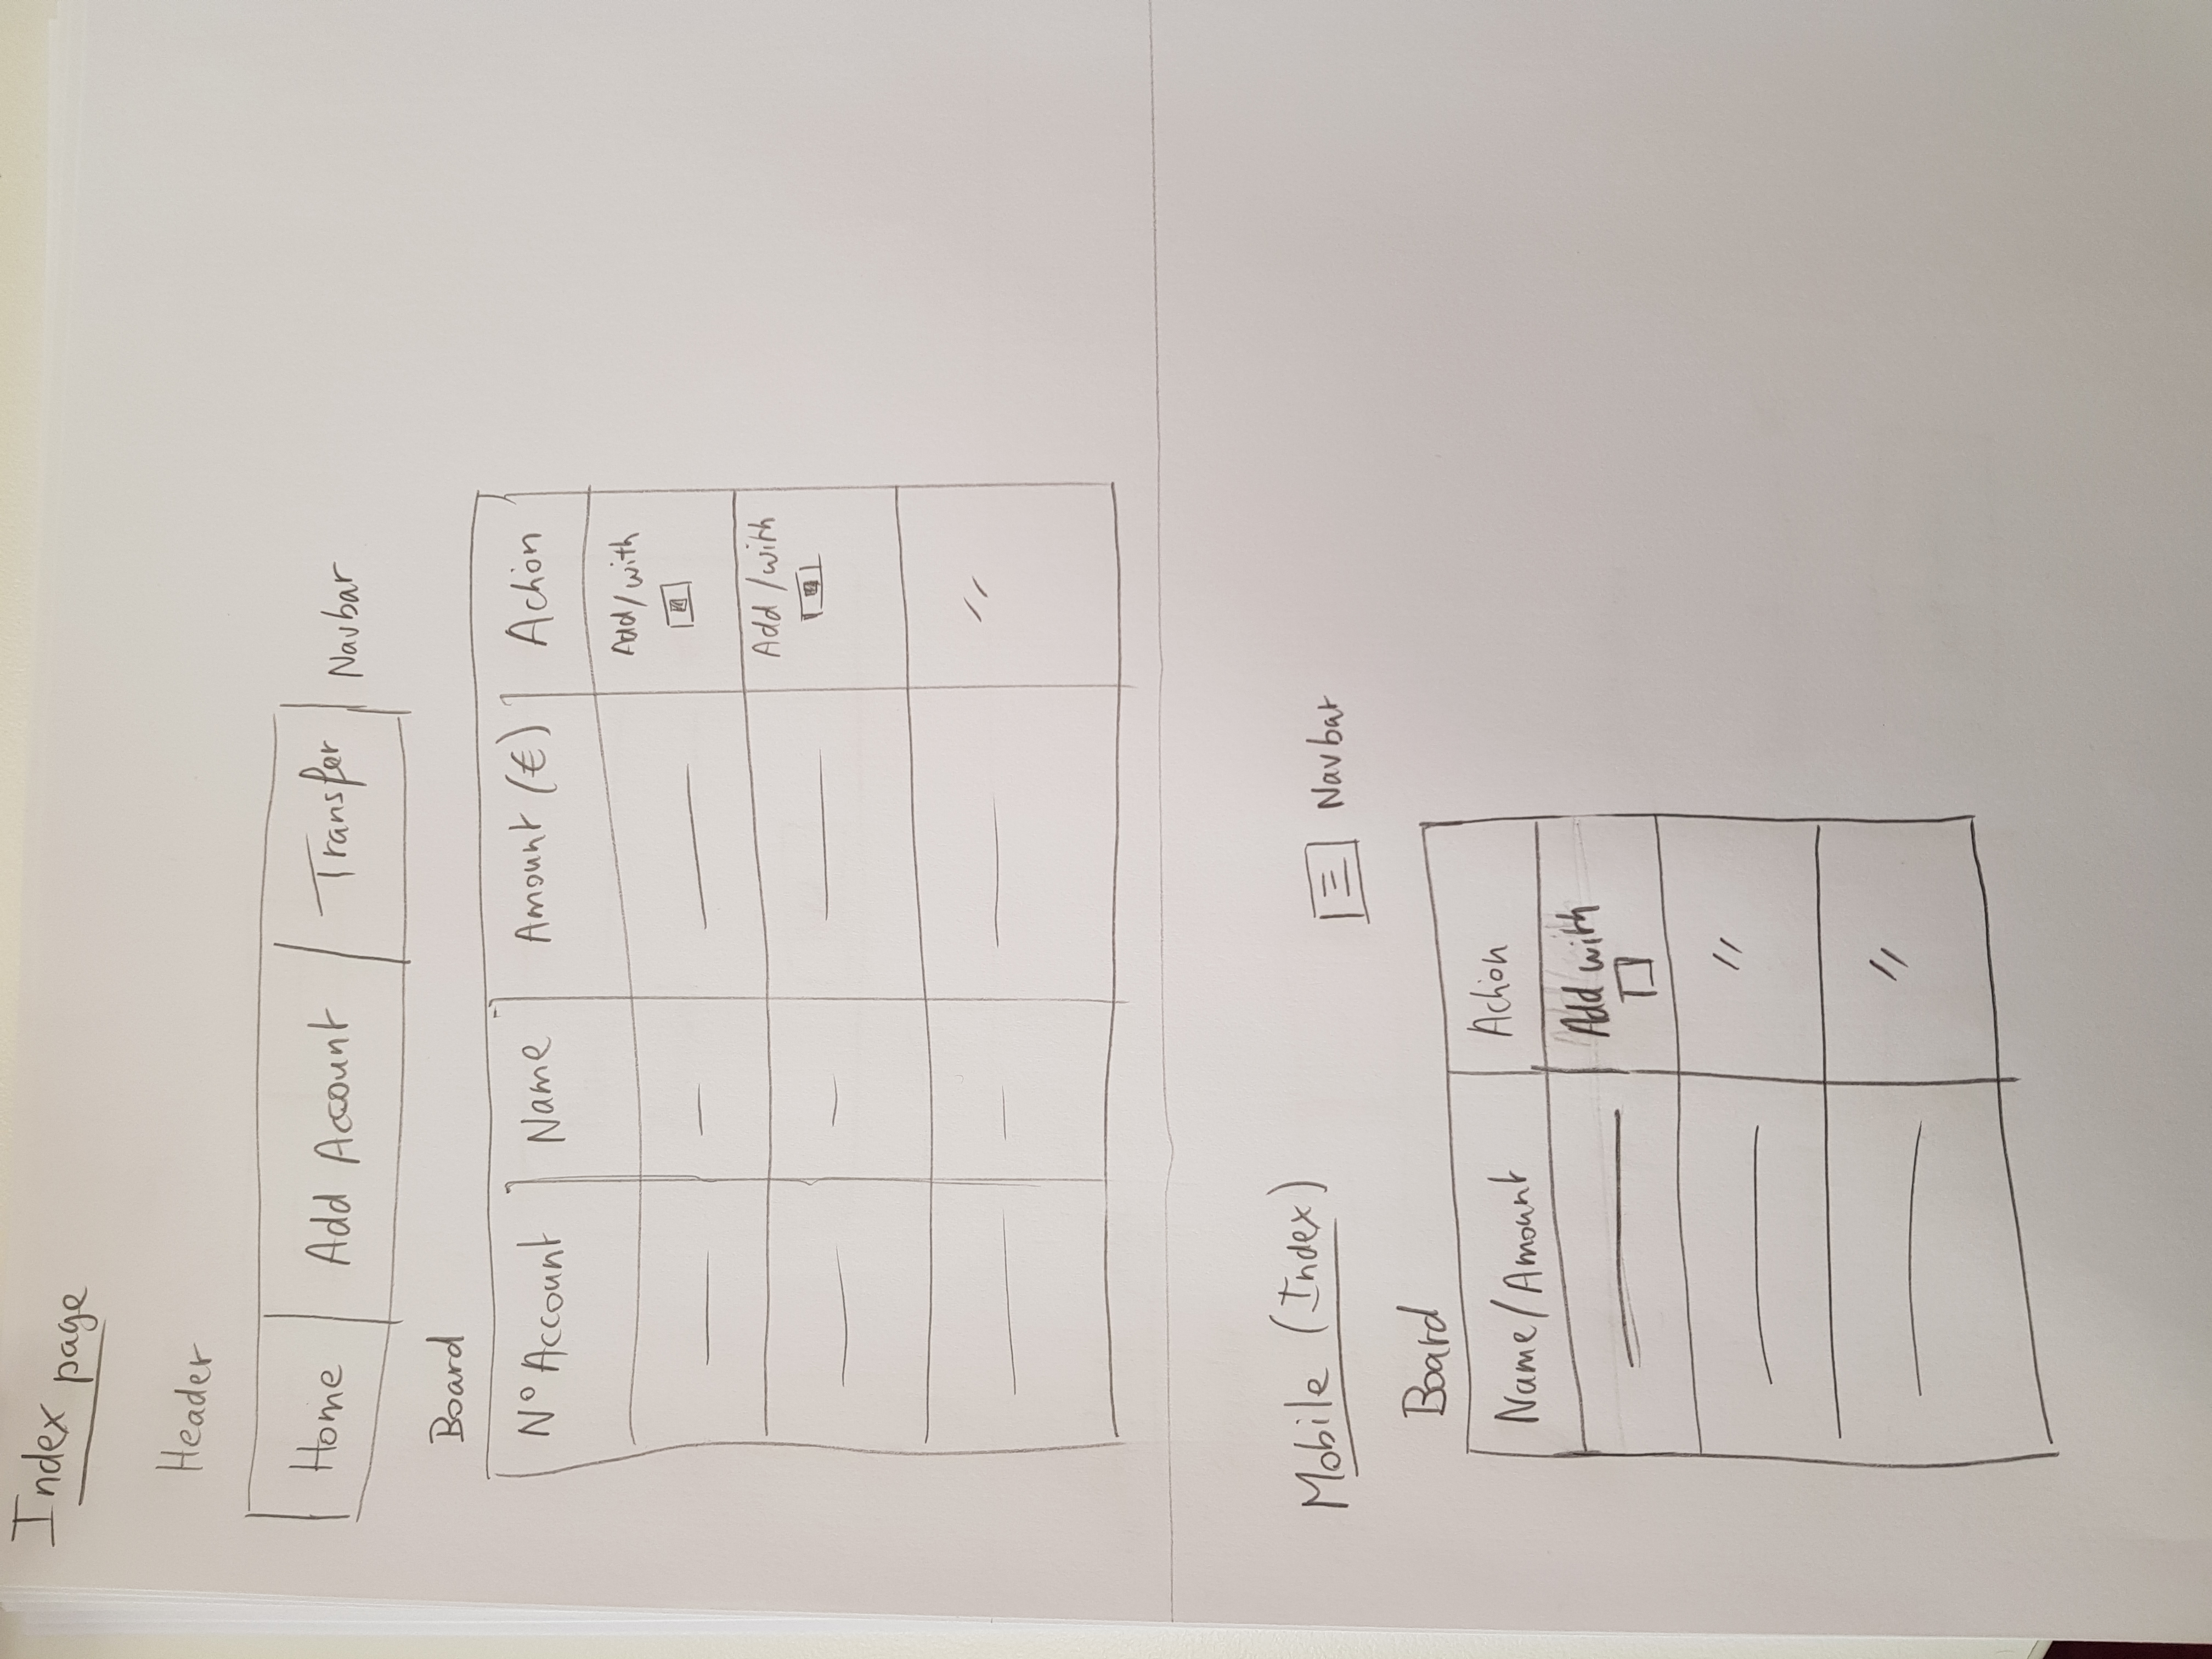 Index page
Header
Home Add Account Transfer Navbar
Board
N° Account Name Amount (€) Action
Add/with
Add/with
//
Mobile (Index)
Navbar
Board
Name/Amount Action
Add with
//
//